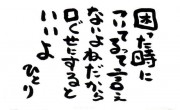 困った時に
ついてるって言え
ないよねだから
口ぐせにすると
いいよ
ひとり